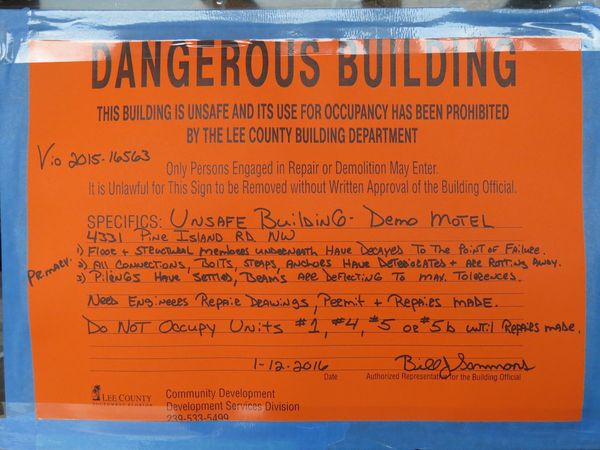 DANGEROUS BUILDING
THIS BUILDING IS UNSAFE AND ITS USE FOR OCCUPANCY HAS BEEN PROHIBITED
BY THE LEE COUNTY BUILDING DEPARTMENT
Vio 2015-16563
Only Persons Engaged in Repair or Demolition May Enter.
It is Unlawful for This Sign to be Removed without Written Approval of the Building Official.
SPECIFICS: UNSAFE BUILDING- DEMO MOTEL
4331 PINE ISLAND RD NW
PRIMARY:
1) FLOOR + STRUCTURAL MEMBERS UNDERNEATH HAVE DECAYED TO THE POINT OF FAILURE.
2) ALL CONNECTIONS, BOLTS, STRAPS, ANCHORS HAVE DETERIORATED + ARE ROTTING AWAY.
3) PILINGS HAVE SETTLED, BEAMS ARE DEFLECTING TO MAX. TOLERENCES.
NEED ENGINEERS REPAIR DRAWINGS, PERMIT + REPAIRS MADE.
DO NOT OCCUPY UNITS #1, #4, #5 OR #5b UNTIL REPAIRS MADE.
1-12-2016 Bill J Sammons
Date Authorized Representative for the Building Official
LEE COUNTY
SOUTHWEST FLORIDA
Community Development
Development Services Division
239-533-5499